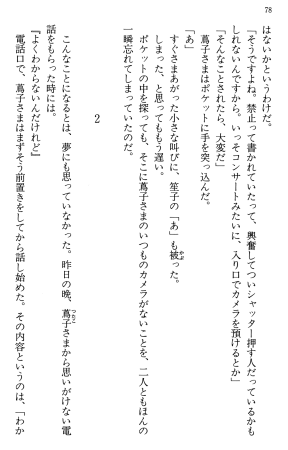 78
はないかというわけだ。
「そうですよね。禁止って書かれていたって、興奮してついシャッター押す人だっているかも
しれないんですから。いっそコンサートみたいに、入り口でカメラを預けるとか」
「そんなことされたら、大変だ」
蔦子さまはポケットに手を突っ込んだ。
「あ」
すぐさまあがった小さな叫びに、笙子の「あ」も被った。
しまった、と思ってももう遅い。
ポケットの中を探っても、そこに蔦子さまのいつものカメラがないことを、二人ともほんの
一瞬忘れてしまっていたのだ。
2
こんなことになるとは、夢にも思っていなかった。昨日の晩、蔦子さまから思いがけない電
話をもらった時には。
『よくわからないんだけれど』
電話口で、蔦子さまはまずそう前置きをしてから話し始めた。その内容というのは、「わか